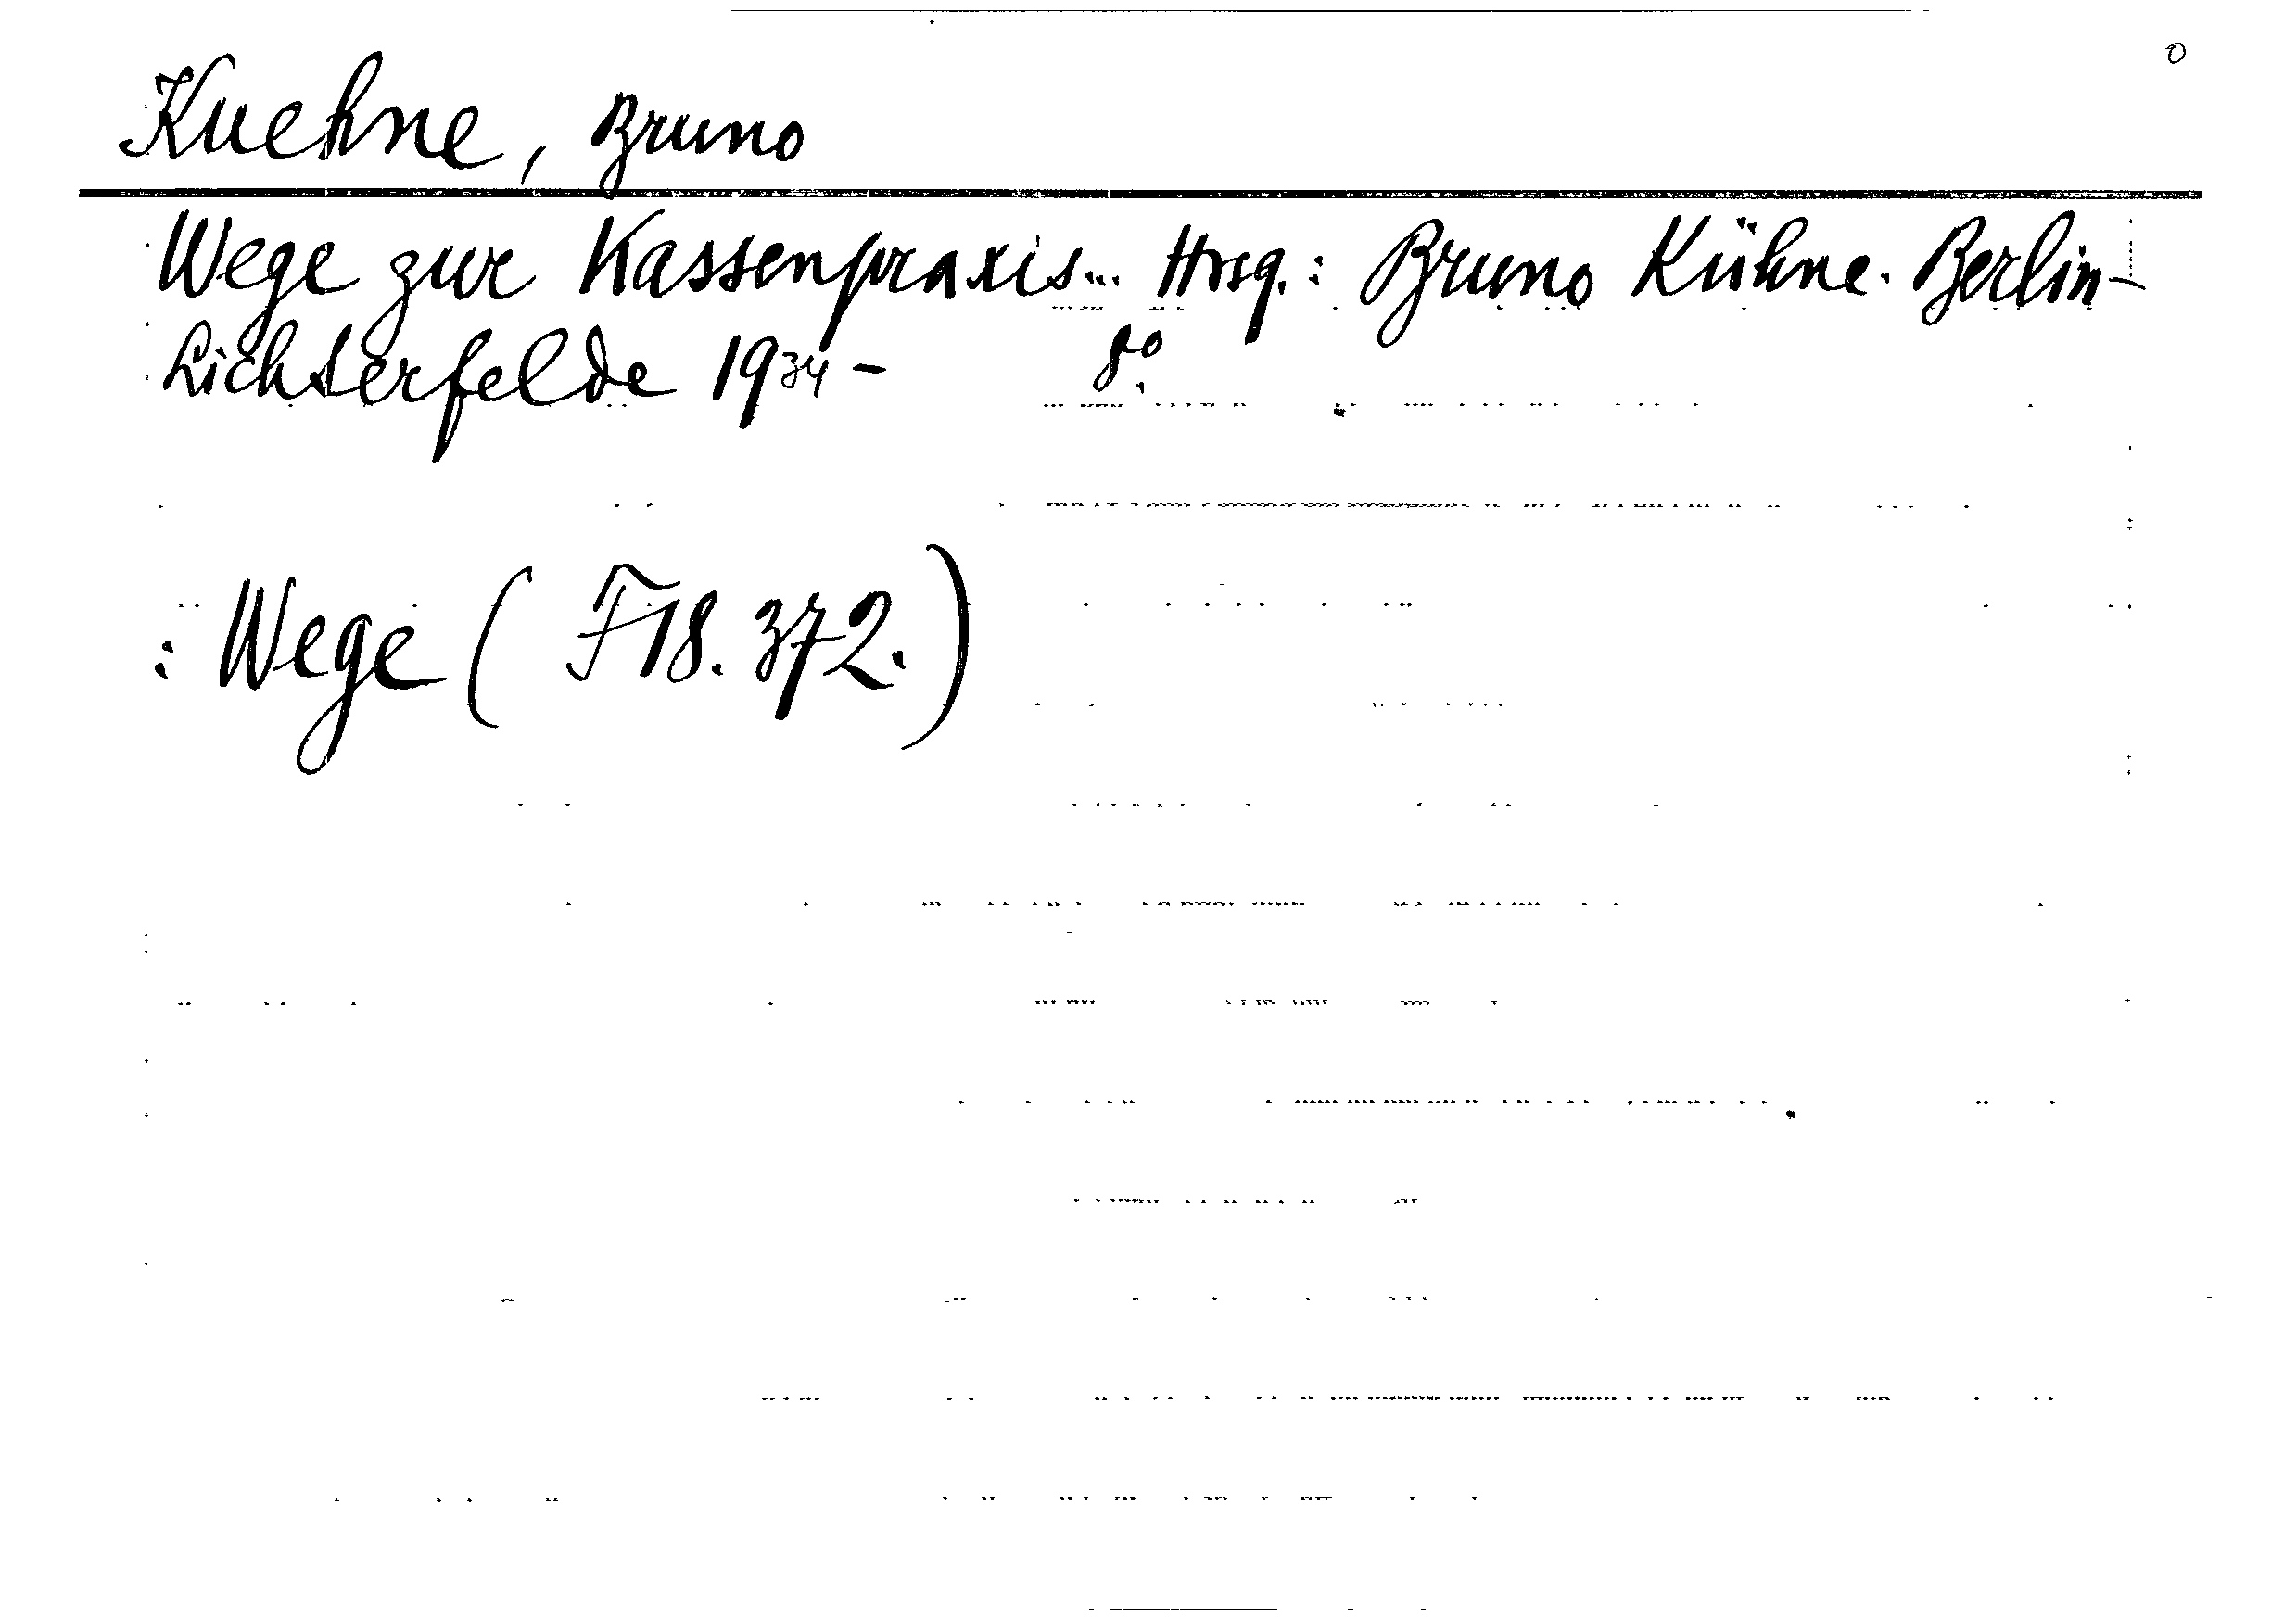 Kuehne, Bruno
Wege zur Kassenpraxis... Hrsg.: Bruno Kühne. Berlin-
Lichterfelde 1934 - 8º.
: Wege ( F18. 372. )